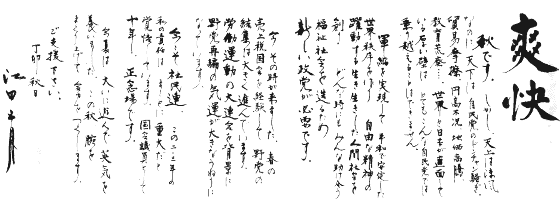 爽快
秋です。しかし、天上は涼風
なのに、天下は自民党の
貿易摩擦、円高不況、地価高騰、
教育荒廃…。世界と日本が直面して
いる高い壁は、とてもこんな自民党では
乗り越えることはできません。
軍縮を実現して平和で安定した
世界秩序をはぐくみ、自由な精神の
躍動する生き生きした人間社会を
創り、どんな時にもみんな助け合う
福祉社会を造るため
新しい政党が必要です。
今、その時が来ました。春の
売上税国会を経験して、野党の
結集は大きく進んでいます。
労働運動の大連合を背景に
野党再編の気運が大きなうねりに
なっています。
今こそ社民連。この二、三年の
私の責任はまことに重大だと
覚悟しています。国会議員として
十年、正念場です。
大いに遊んで英気を
養いました。この秋
ご支援下さい。
丁卯 秋日
江田五月